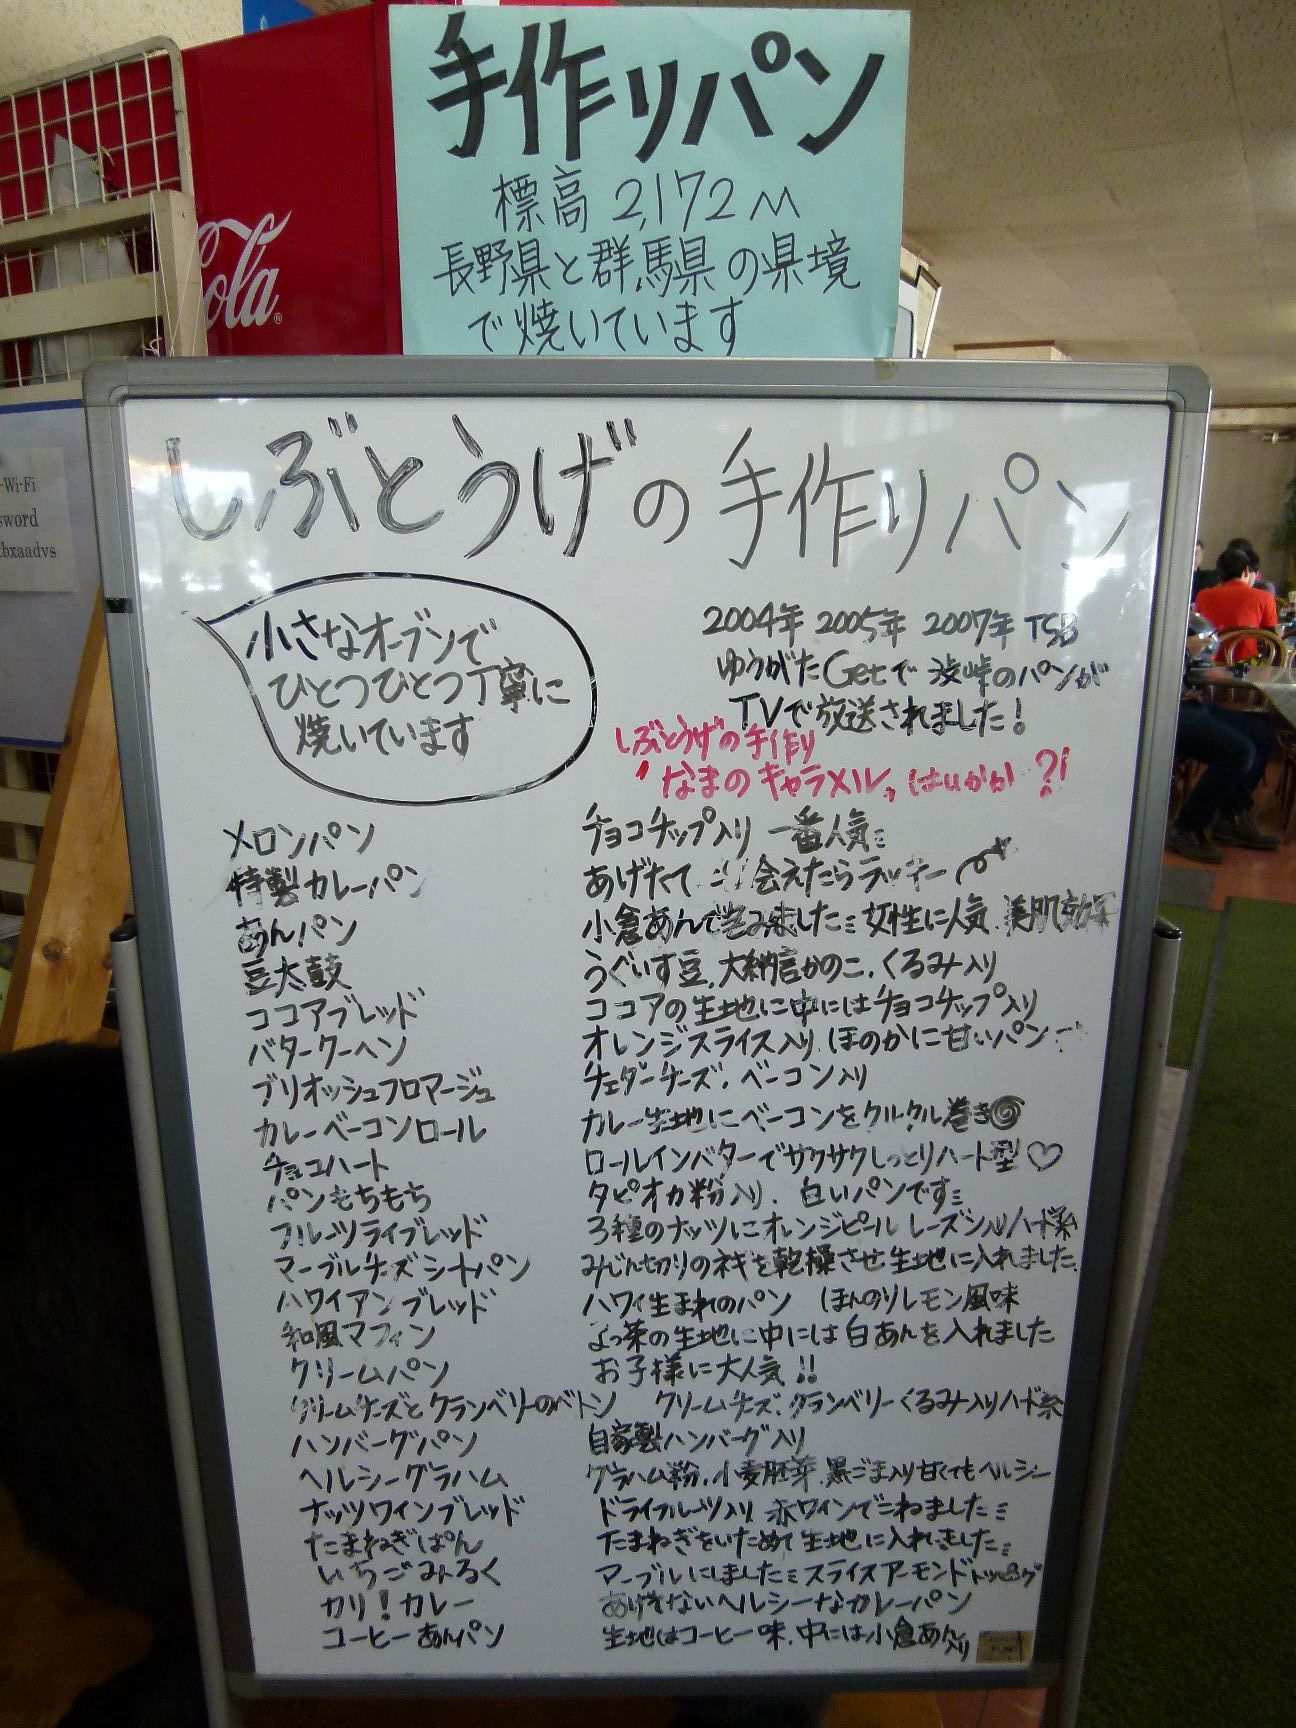 手作りパン
標高 2,172m
長野県と群馬県の県境
で焼いています
Cola
Wi-Fi
sword
bxaadvs
しぶとうげの手作りパン
小さなオーブンで
ひとつひとつ丁寧に
焼いています
2004年 2005年 2007年 TSB
ゆうがたGetで 渋峠のパンが
TVで放送されました!
しぶとうげの手作り
"なまのキャラメル" はいかが?!
メロンパン チョコチップ入り 一番人気
特製カレーパン あげたて 会えたらラッキー
あんパン 小倉あんで包みました 女性に人気 美肌効果
豆太鼓 うぐいす豆、大納言かのこ、くるみ入り
ココアブレッド ココアの生地に中にはチョコチップ入り
バタークーヘン オレンジスライス入り ほのかに甘いパン
ブリオッシュフロマージュ チェダーチーズ、ベーコン入り
カレーベーコンロール カレー生地にベーコンをクルクル巻き
チョコハート ロールインバターでサクサクしっとりハート型♡
パンもちもち タピオカ粉入り、白いパンです
フルーツライブレッド 3種のナッツにオレンジピール レーズン入りハード系
マーブルチーズシートパン みじん切りのネギを乾操させ生地に入れました
ハワイアンブレッド ハワイ生まれのパン ほんのりレモン風味
和風マフィン よっ茶の生地に中には白あんを入れました
クリームパン お子様に大人気!!
クリームチーズとクランベリーのベトン クリームチーズ、クランベリーくるみ入りハード系
ハンバーグパン 自家製ハンバーグ入り
ヘルシーグラハム グラハム粉、小麦胚芽、黒ごま入り甘くてもヘルシー
ナッツワインブレッド ドライフルーツ入り 赤ワインでこねました
たまねぎぱん たまねぎをいためて生地に入れました
いちごみるく マーブルにしました スライスアーモンドトッピング
カリ!カレー あげないヘルシーなカレーパン
コーヒーあんパン 生地はコーヒー味、中には小倉あん入り